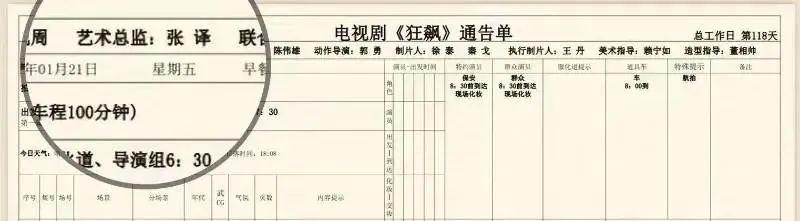 电视剧《狂飙》通告单
总工作日 第118天
周 艺术总监：张 译 联合
陈伟雄 动作导演：郭 勇 制片人：徐 泰 秦 戈 执行制片人：王 丹 美术指导：赖宁如 造型指导：董相帅
年01月21日 星期五 早餐
演员--出发时间 特约演员 群众演员 服化道提示 道具车 特殊提示 备注
角色
保安
8：30前到达
现场化妆
群众
8：30前到达
现场化妆
车
8：00到
航拍
车程100分钟）
演员
：30
今日天气：
道、导演组6：30
落时间：18:08
出发—到达
化妆—交妆
序号 集号 场号 场景 分场景 年代 武CG 气氛 页数 内容提示